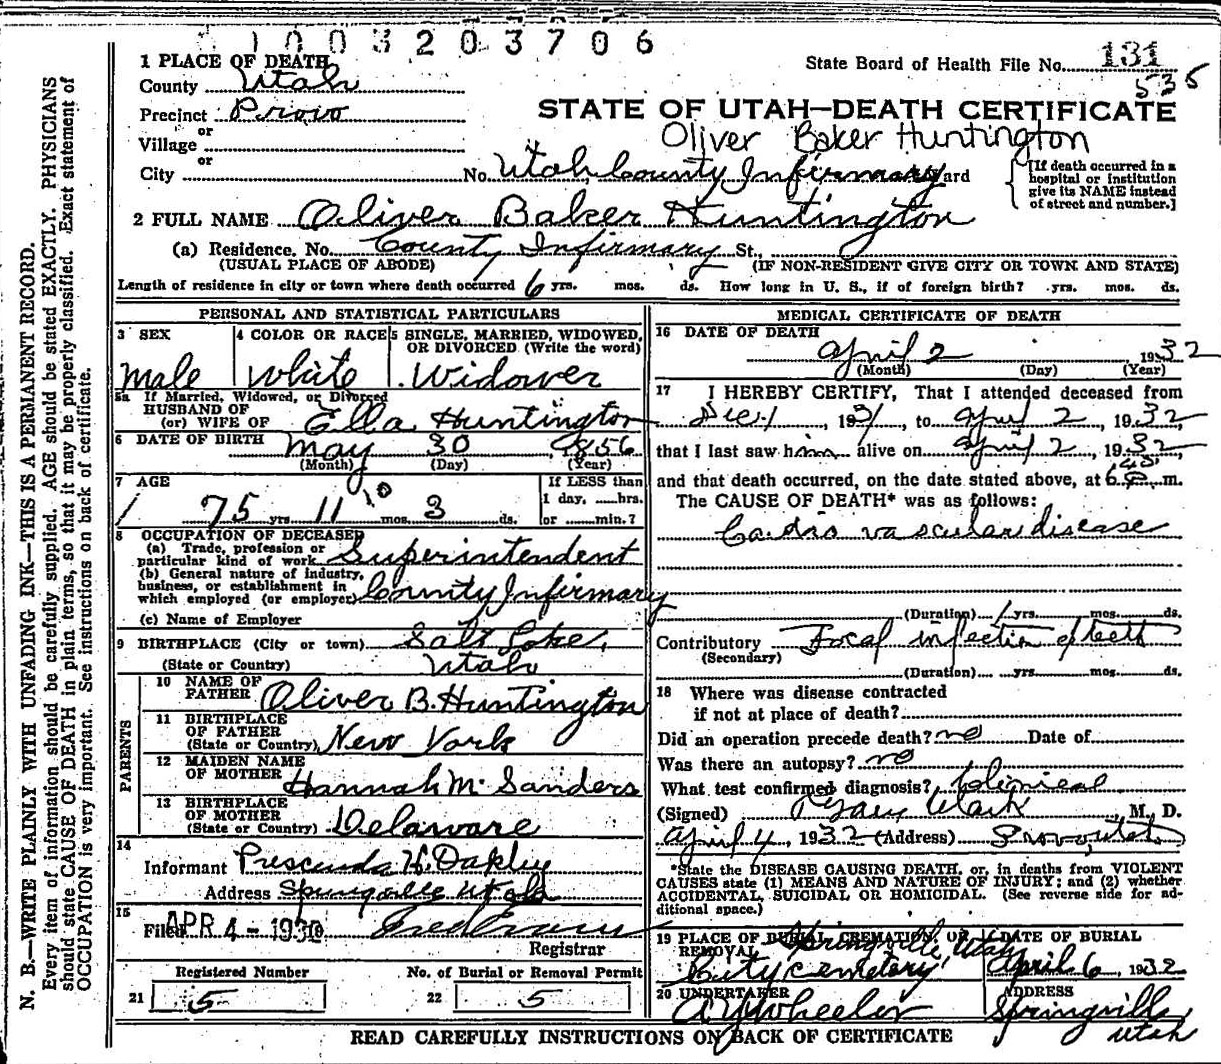 1003203706
1 PLACE OF DEATH
State Board of Health File No. 131
County Utah
535
Precinct Provo
STATE OF UTAH—DEATH CERTIFICATE
or
Village
Oliver Baker Huntington
or
City No. Utah County Infirmary Ward
[If death occurred in a hospital or institution give its NAME instead of street and number.]
2 FULL NAME Oliver Baker Huntington
(a) Residence, No. County Infirmary St.,
(USUAL PLACE OF ABODE) (IF NON-RESIDENT GIVE CITY OR TOWN AND STATE)
Length of residence in city or town where death occurred 6 yrs. mos. ds. How long in U. S., if of foreign birth? yrs. mos. ds.
PERSONAL AND STATISTICAL PARTICULARS
3 SEX
Male
4 COLOR OR RACE
White
5 SINGLE, MARRIED, WIDOWED, OR DIVORCED (Write the word)
Widower
5a If Married, Widowed, or Divorced
HUSBAND OF
(or) WIFE OF Ella Huntington
6 DATE OF BIRTH May 30 1856
(Month) (Day) (Year)
7 AGE
75 yrs. 11 10 mos. 3 ds.
If LESS than
1 day, ......hrs.
or ........min.?
8 OCCUPATION OF DECEASED
(a) Trade, profession or
particular kind of work Superintendent
(b) General nature of industry,
business, or establishment in
which employed (or employer) County Infirmary
(c) Name of Employer
9 BIRTHPLACE (City or town) Salt Lake,
(State or Country) Utah
PARENTS
10 NAME OF
FATHER Oliver B. Huntington
11 BIRTHPLACE
OF FATHER
(State or Country) New York
12 MAIDEN NAME
OF MOTHER Hannah M. Sanders
13 BIRTHPLACE
OF MOTHER
(State or Country) Delaware
14
Informant Prescenda H. Oakley
Address Springville Utah
15
Filed APR 4 - 193
Registrar
Registered Number
21 5
No. of Burial or Removal Permit
22 5
MEDICAL CERTIFICATE OF DEATH
16 DATE OF DEATH
April 2 1932
(Month) (Day) (Year)
17 I HEREBY CERTIFY, That I attended deceased from
Dec 1, 1931, to April 2 1932,
that I last saw him alive on April 2, 1932,
and that death occurred, on the date stated above, at 6:45 m.
The CAUSE OF DEATH* was as follows:
Cardio vascular disease
(Duration) 1 yrs. mos. ds.
Contributory Focal infection of teeth
(Secondary)
(Duration) yrs. mos. ds.
18 Where was disease contracted
if not at place of death?
Did an operation precede death? no Date of
Was there an autopsy? no
What test confirmed diagnosis? Clinical
(Signed) Clark, M. D.
April 4, 1932 (Address) Provo, Utah
*State the DISEASE CAUSING DEATH, or, in deaths from VIOLENT
CAUSES state (1) MEANS AND NATURE OF INJURY; and (2) whether
ACCIDENTAL, SUICIDAL OR HOMICIDAL. (See reverse side for additional space.)
19 PLACE OF BURIAL, CREMATION, OR
REMOVAL Springville, Utah
City Cemetery
DATE OF BURIAL
April 6, 1932
20 UNDERTAKER
A Y Wheeler
ADDRESS
Springville
Utah
READ CAREFULLY INSTRUCTIONS ON BACK OF CERTIFICATE
N. B.—WRITE PLAINLY WITH UNFADING INK—THIS IS A PERMANENT RECORD.
Every item of information should be carefully supplied. AGE should be stated EXACTLY. PHYSICIANS
should state CAUSE OF DEATH in plain terms, so that it may be properly classified. Exact statement of
OCCUPATION is very important. See instructions on back of certificate.